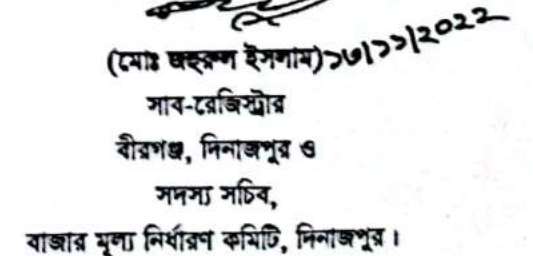 (মোঃ জহরুল ইসলাম) ১৬/১১/2022
সাব-রেজিস্ট্রার
বীরগঞ্জ, দিনাজপুর ও
সদস্য সচিব,
বাজার মূল্য নির্ধারণ কমিটি, দিনাজপুর।